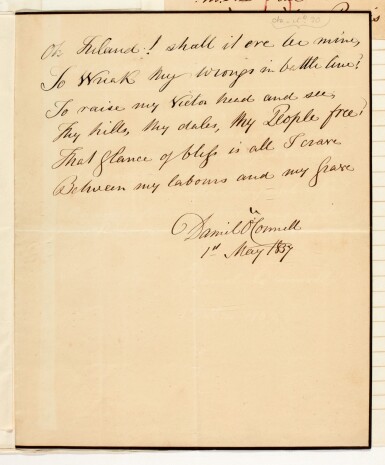 Oh Ireland! shall it ere be mine,
To Wreak thy wrongs in battle line!
To raise my Victor head and see
Thy hills, thy dales, thy People free!
That glance of bliss is all I crave
Between my labours and my grave
Daniel O'Connell
1st May 1837